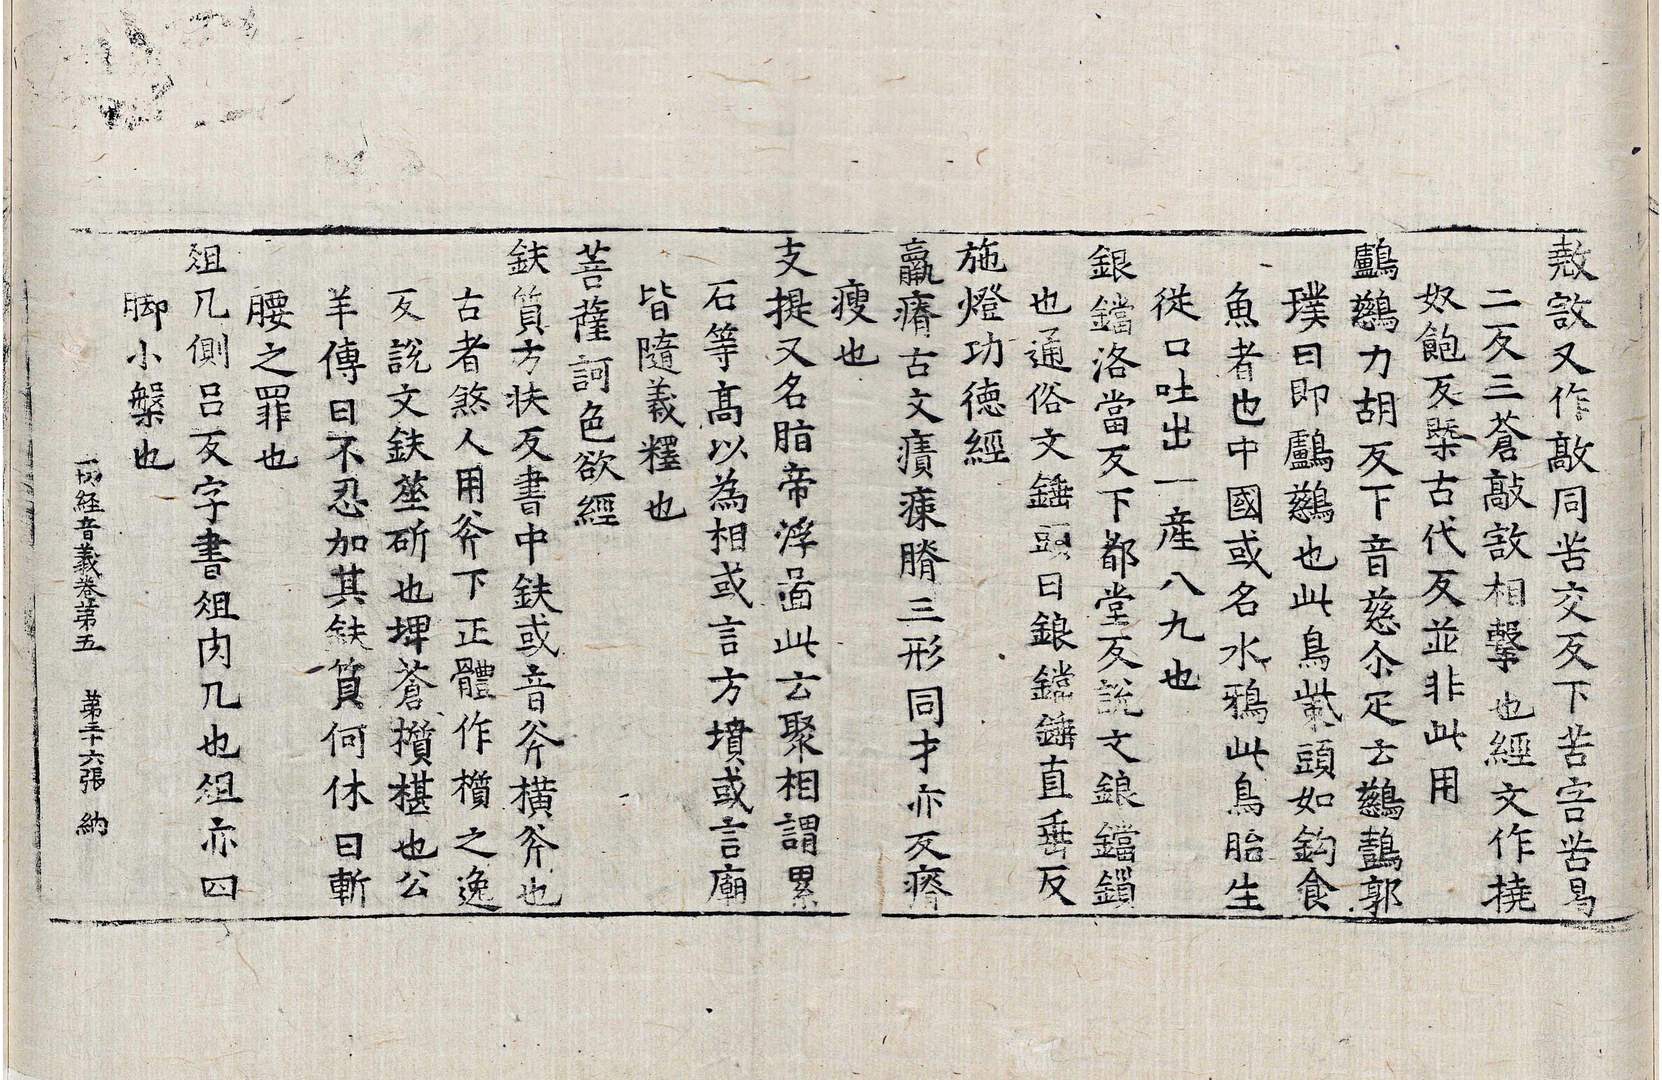 敲㲉又作敲同苦交反下苦穵苦曷
二反三蒼敲㲉相擊也經文作撓
奴飽反槩古代反並非此用
鸕鷀力胡反下音慈尒疋云鷀鷧郭
璞曰即鸕鷀也此鳥觜頭如鈎食
魚者也中國或名水鵶此鳥胎生
從口吐出一產八九也
鋃鐺洛當反下都堂反說文鋃鐺鎖
也通俗文錘頭曰鋃鐺錘直垂反
施燈功德經
羸瘠古文㾊㾊膌三形同才亦反瘠
瘦也
支提又名脂帝浮啚此云聚相謂累
石等高以為相或言方墳或言廟
皆隨義釋也
菩薩訶色欲經
鈇質方扶反書中鈇或音斧橫斧也
古者煞人用斧下正體作櫍之逸
反說文鈇莝斫也埤蒼櫍椹也公
羊傳曰不忍加其鈇質何休曰斬
腰之罪也
俎几側呂反字書俎肉几也俎亦四
脚小槃也
一切経音義卷第五　第三十六張　納